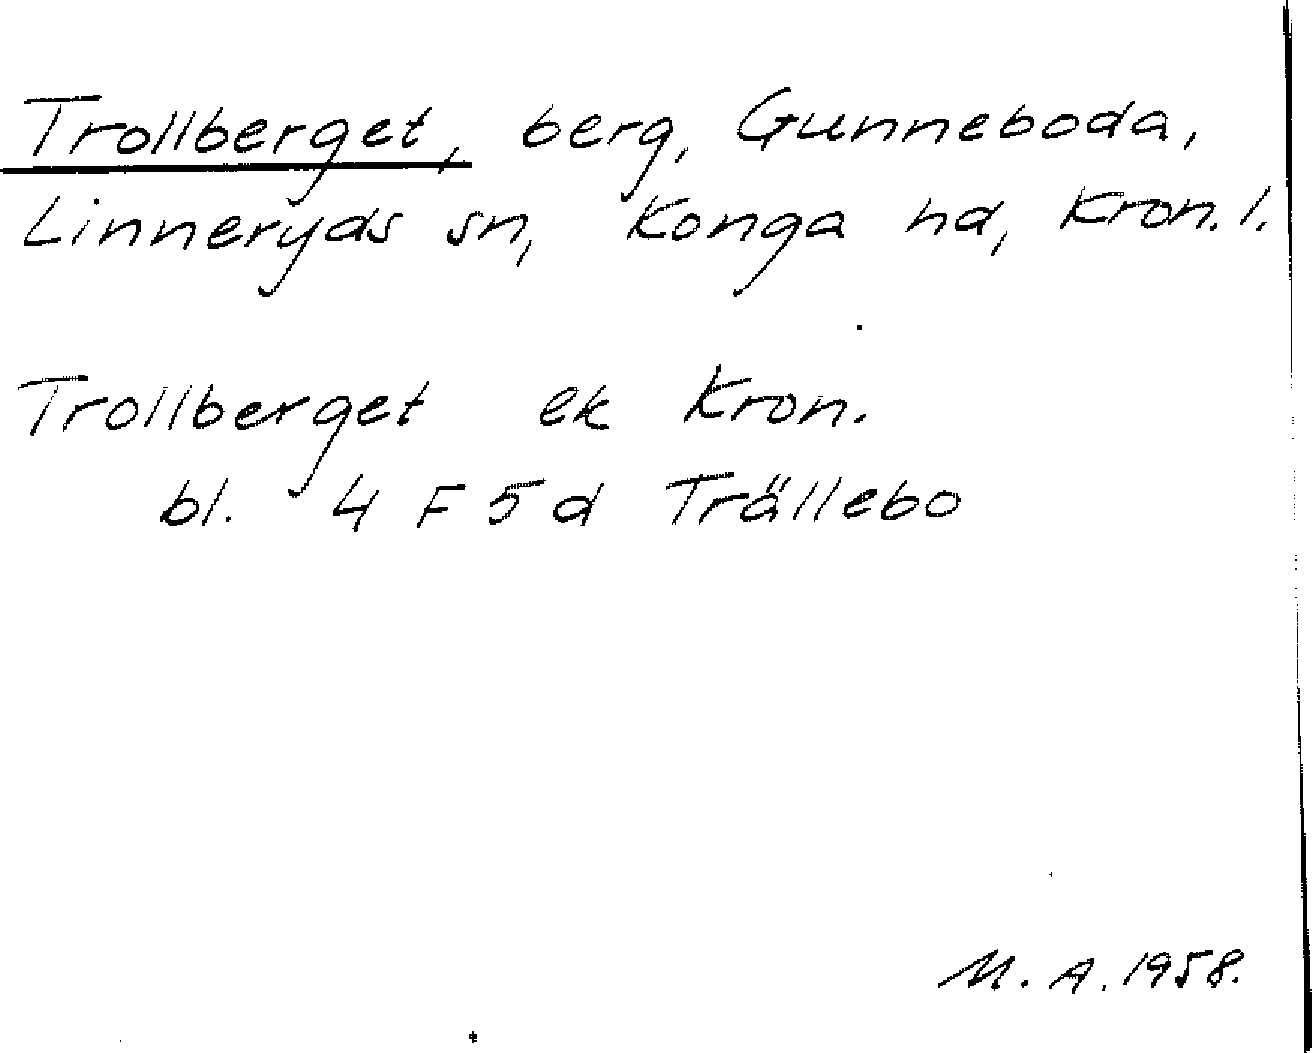 Trollberget, berg, Gunneboda,
Linneryds sn, Konga hd, Kron. l.
Trollberget ek Kron.
bl. 4 F 5 d Trällebo
M. A. 1958.